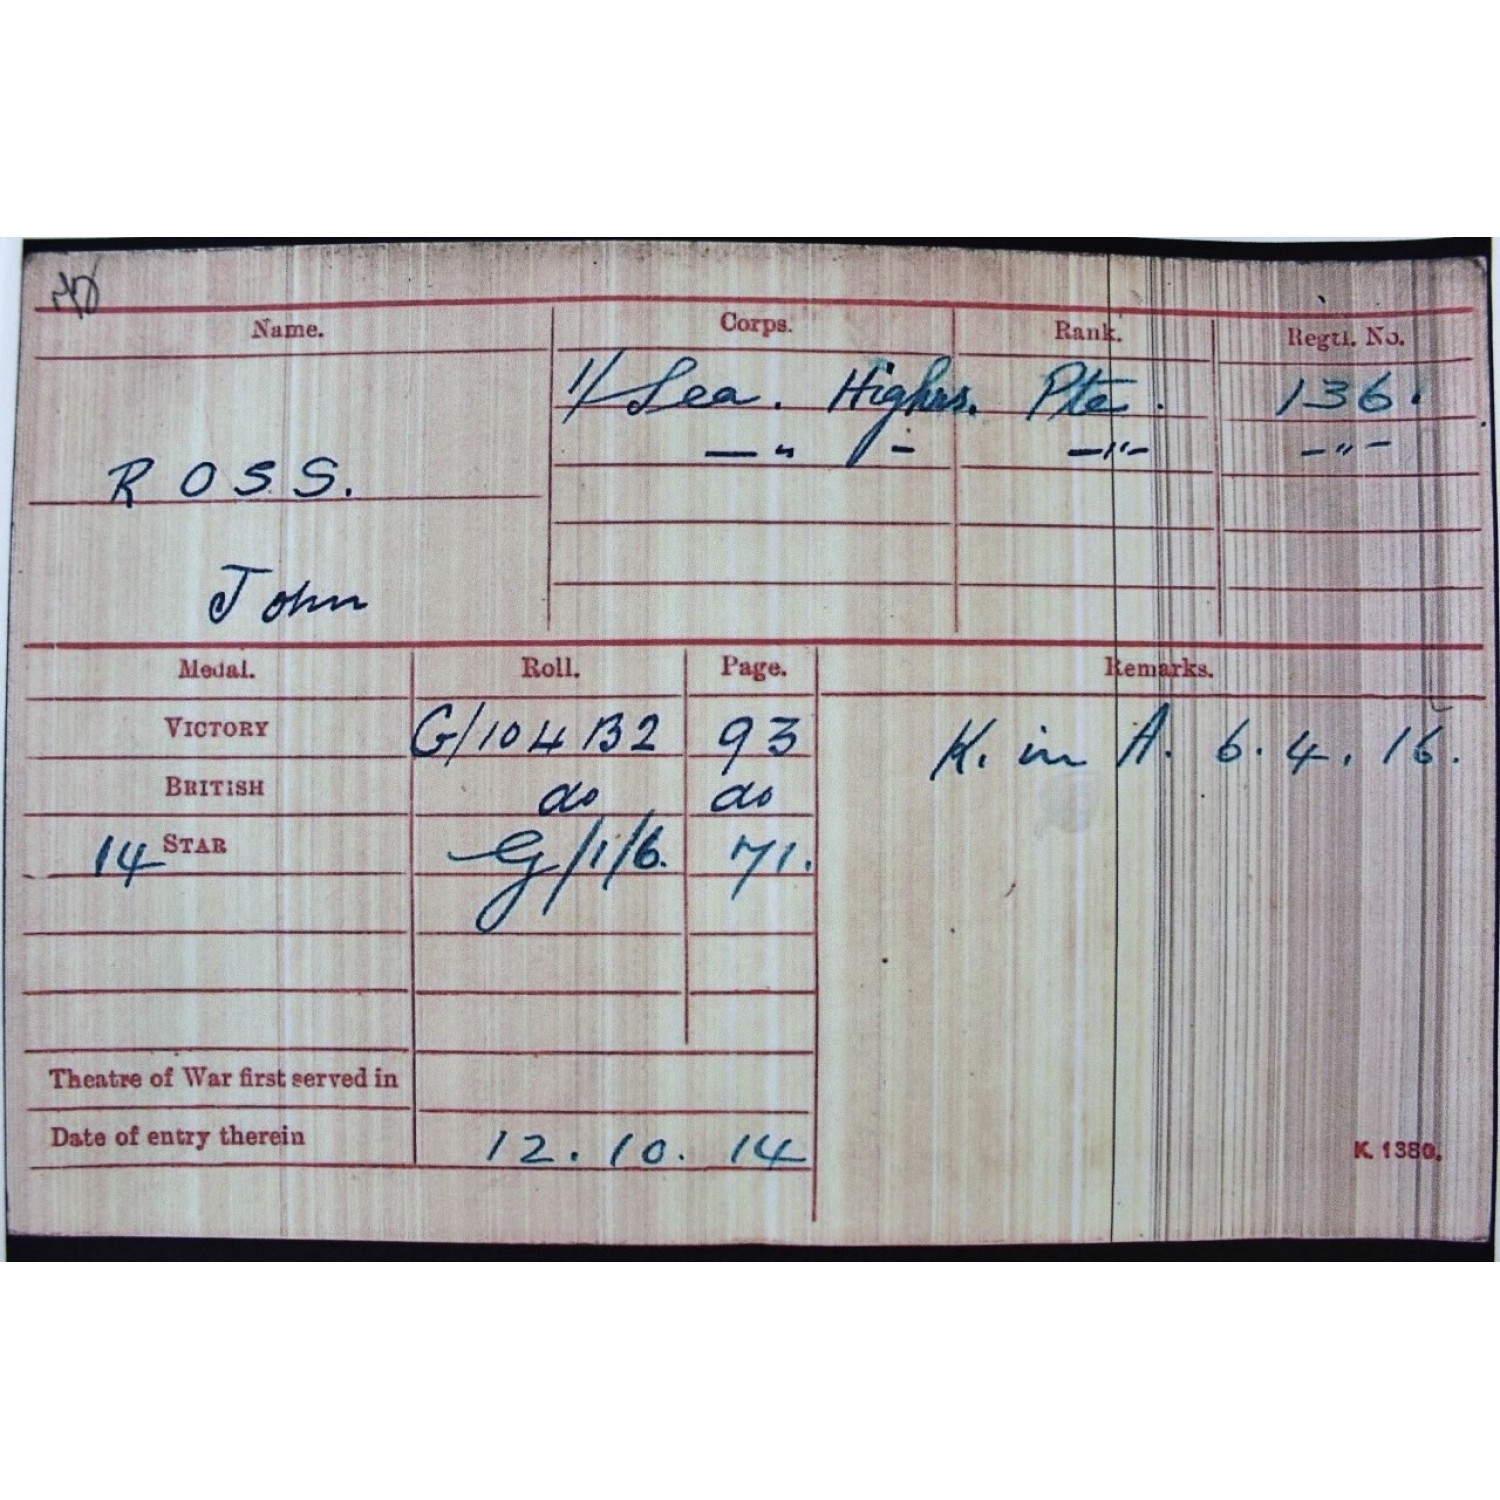 Name. Corps. Rank. Regtl. No.
1/ Sea. Highrs. Pte. 136.
—"— —"— —"—
ROSS.
John
Medal. Roll. Page. Remarks.
VICTORY G/104 B2 93 K. in A. 6.4.16.
BRITISH do do
14 STAR G/1/6. 71.
Theatre of War first served in
Date of entry therein 12.10.14
K. 1380.